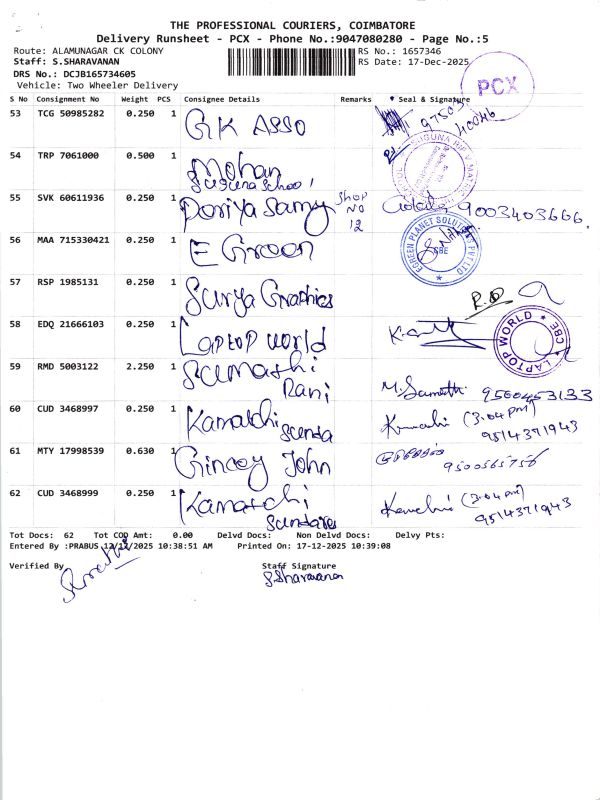 THE PROFESSIONAL COURIERS, COIMBATORE
Delivery Runsheet - PCX - Phone No.:9047080280 - Page No.:5
Route: ALAMUNAGAR CK COLONY RS No.: 1657346
Staff: S.SHARAVANAN RS Date: 17-Dec-2025
DRS No.: DCJB165734605
Vehicle: Two Wheeler Delivery
PCX
S No Consignment No Weight PCS Consignee Details Remarks Seal & Signature
53 TCG 50985282 0.250 1 GK ASSO
54 TRP 7061000 0.500 1 Mohan
Suguna School
55 SVK 60611936 0.250 1 Doriya Samy Shop NO 12 9003403666
56 MAA 715330421 0.250 1 E Green
EGREEN PLANET SOLUTIONS PVT LTD CBE
57 RSP 1985131 0.250 1 Surya Graphics
58 EDQ 21666103 0.250 1 Laptop world
LAPTOP WORLD CBE
59 RMD 5003122 2.250 1 Sumathi
Rani M. Sumathi 9560453133
60 CUD 3468997 0.250 1 Kamatchi (3.04 pm)
Sunda 9514371943
61 MTY 17998539 0.630 1 Gincey John 9500565756
62 CUD 3468999 0.250 1 Kamatchi (3.04 pm)
Sundara 9514371943
Tot Docs: 62 Tot COD Amt: 0.00 Delvd Docs: Non Delvd Docs: Delvy Pts:
Entered By :PRABUS 17/12/2025 10:38:51 AM Printed On: 17-12-2025 10:39:08
Verified By Staff Signature
S.Sharavanan